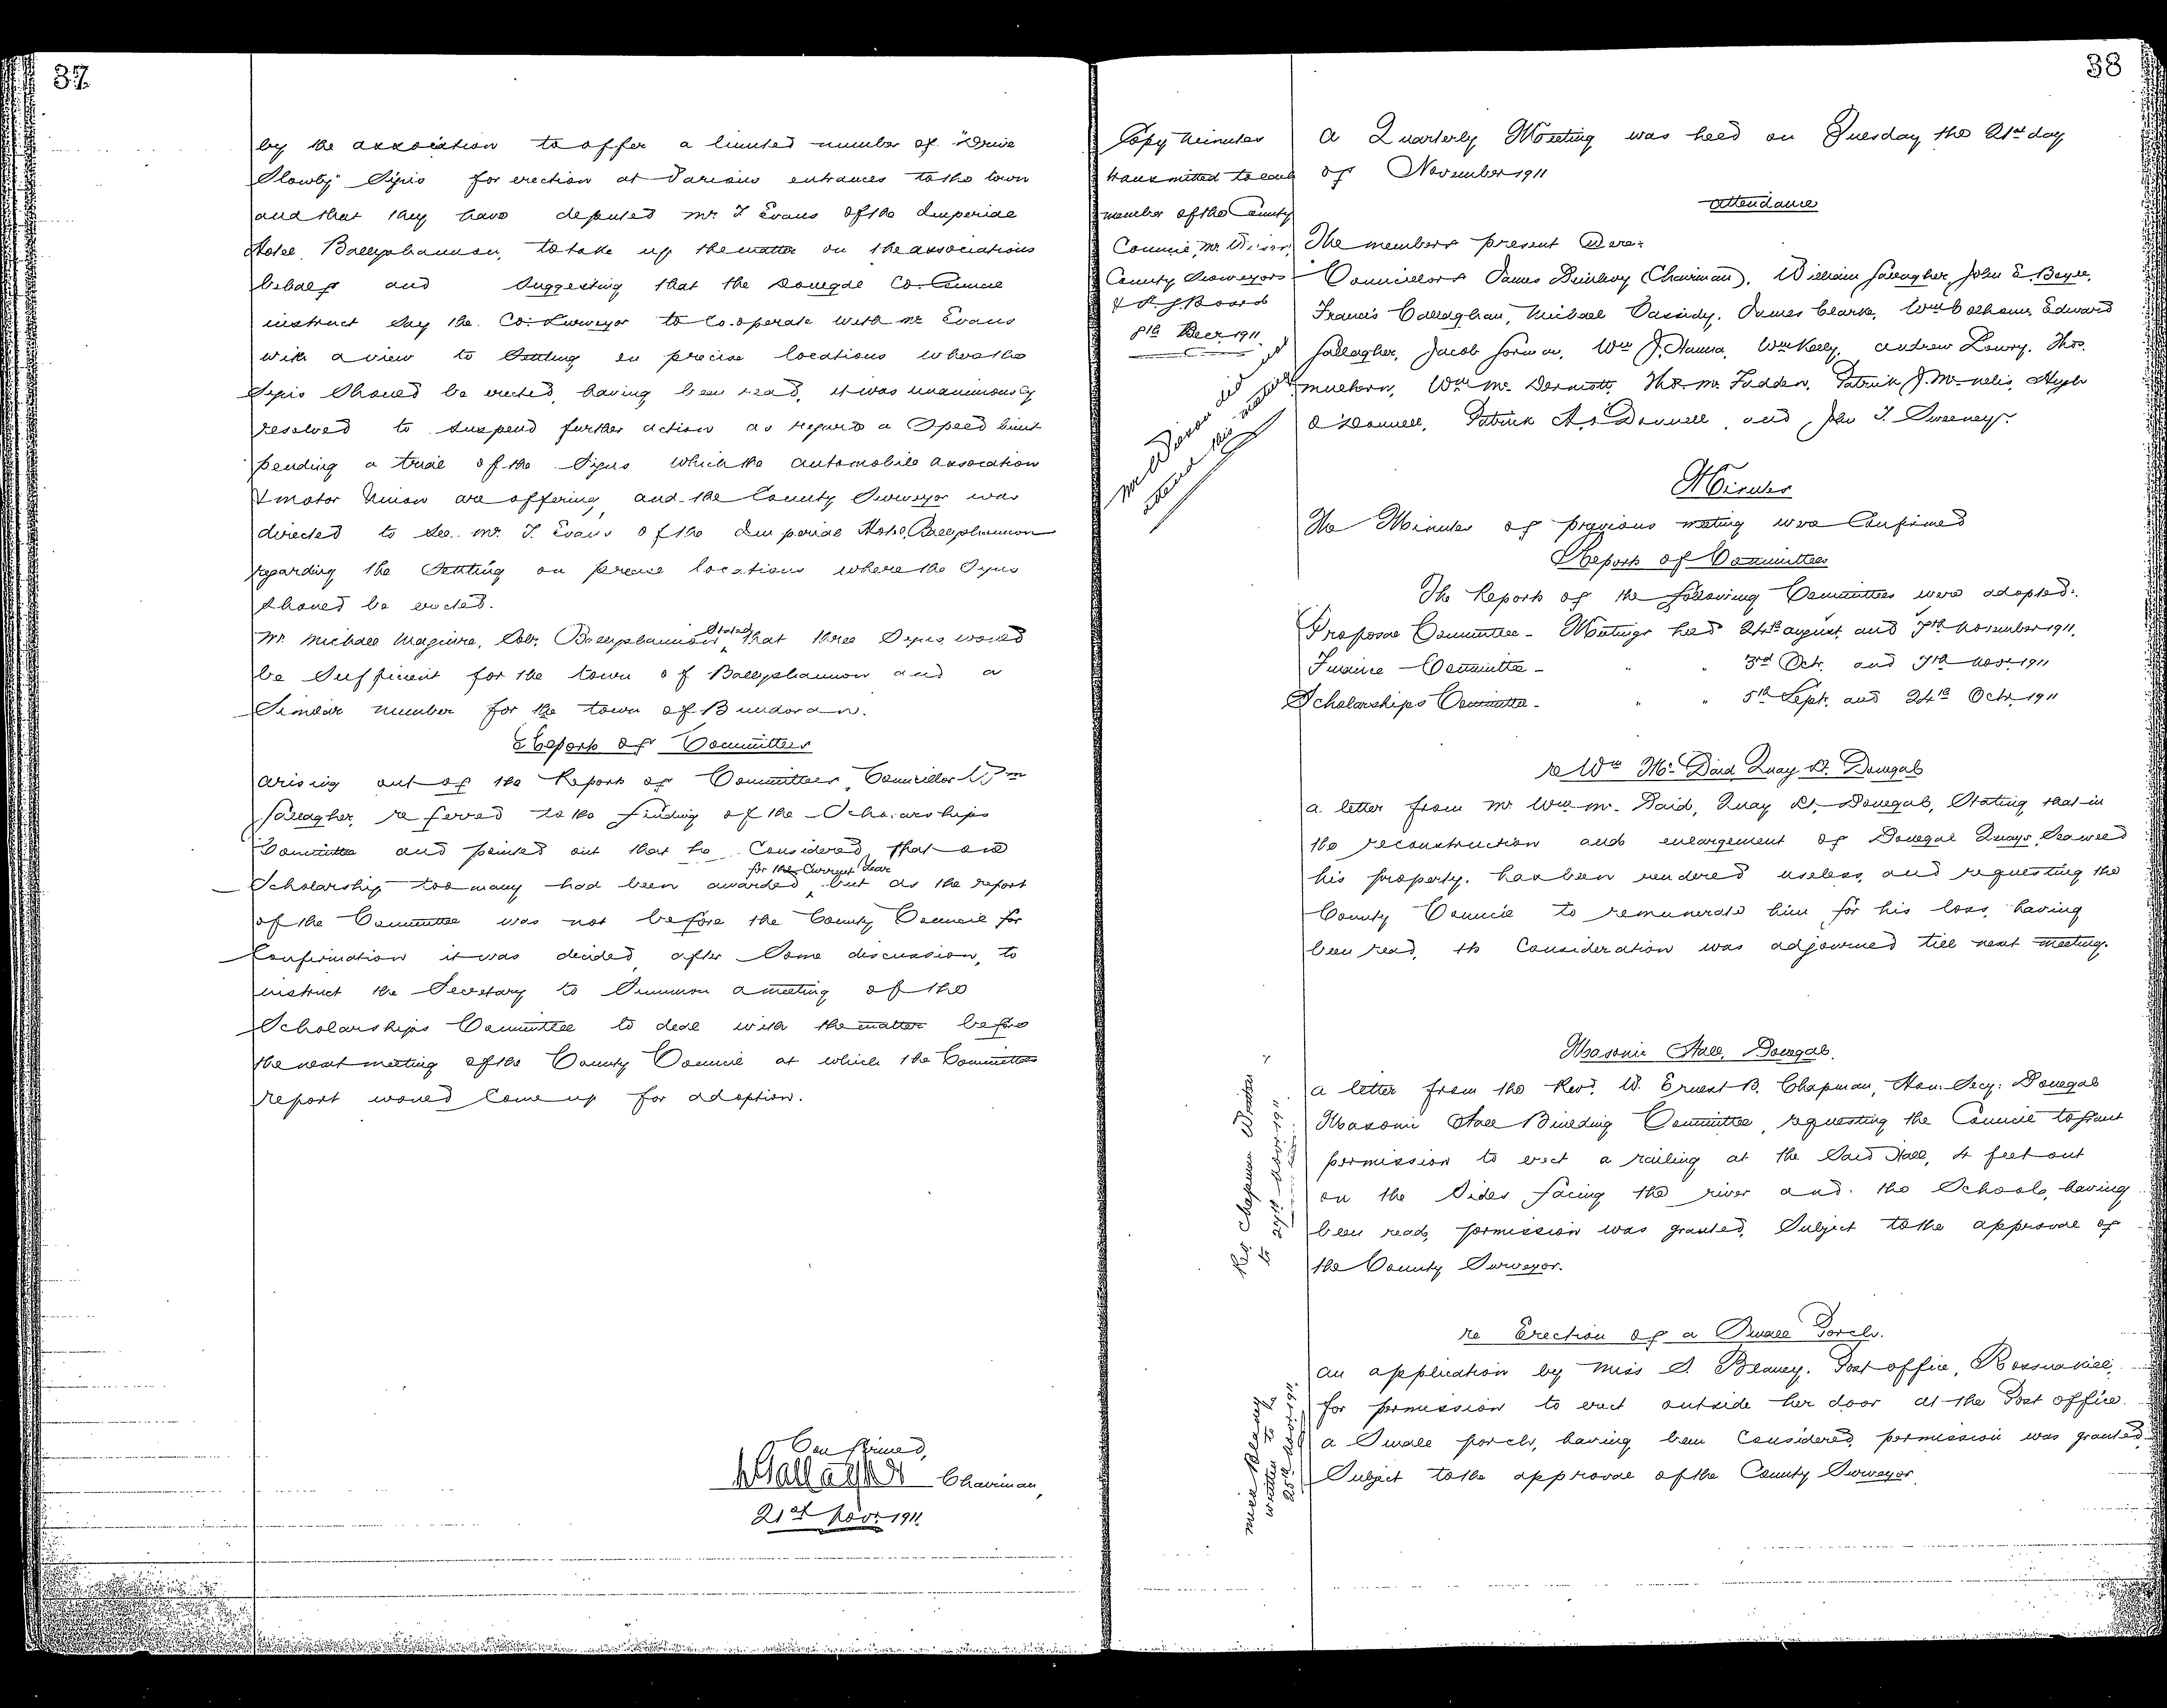 37
by the association to offer a limited number of "Drive
Slowly" Signs for erection at various entrances to the town
and that they have deputed Mr J Evans of the Imperial
Hotel, Ballyshannon, to take up the matter on the associations
behalf and suggesting that the Donegal Co. Council
instruct say the Co. Surveyor to co.operate with Mr Evans
with a view to settling on precise locations where the
Signs should be erected, having been read, it was unanimously
resolved to suspend further action as regards a Speed limit
pending a trial of the Signs which the automobile association
& motor Union are offering, and the County Surveyor was
directed to see Mr. J. Evans of the Imperial Hotel, Ballyshannon
regarding the settling on precise locations where the Signs
should be erected.
Mr Michael Maguire, Solr, Ballyshannon stated that three Signs would
be sufficient for the town of Ballyshannon and a
Similar number for the town of Bundoran.
Reports of Committees
Arising out of the Reports of Committees, Councillor Wm
Gallagher, referred to the finding of the Scholarships
Committee and pointed out that he considered that one
Scholarship too many had been awarded for the current year but as the report
of the Committee was not before the County Council for
Confirmation it was decided, after some discussion, to
instruct the Secretary to summon a meeting of the
Scholarships Committee to deal with the matter before
the next meeting of the County Council at which the Committees
report would come up for adoption.
Confirmed,
W Gallagher Chairman,
21st Novr. 1911.
38
Copy Minutes
transmitted to each
member of the County
Council, Mr Dixon,
County Surveyors
& L. G. Board
8th Decr. 1911.
Mr Dixon did not
attend this meeting
A Quarterly Meeting was held on Tuesday the 21st day
of November 1911
Attendance
The members present were:
Councillors James Dunlevy (Chairman), William Gallagher, John E. Boyle,
Francis Callaghan, Michael Cassidy, James Clarke, Wm Colhoun, Edward
Gallagher, Jacob Gorman, Wm J. Hanna, Wm Kelly, Andrew Lowry, Thos.
Mulhern, Wm McDermott, Thos. McFadden, Patrick J. McNelis, Hugh
O'Donnell, Patrick A. O'Donnell, and John T. Sweeney.
Minutes
The Minutes of previous meeting were Confirmed
Reports of Committees
The Reports of the following Committees were adopted:
Proposal Committee - Meetings held 24th August, and 7th November 1911.
Finance Committee - " " 3rd Oct. and 7th Novr. 1911
Scholarships Committee - " " 5th Sept. and 24th Octr. 1911
re Wm McDaid Quay St. Donegal
A letter from Mr Wm McDaid, Quay St. Donegal, stating that in
the reconstruction and enlargement of Donegal Quays, Seaweed
his property, has been rendered useless, and requesting the
County Council to remunerate him for his loss, having
been read, its consideration was adjourned till next meeting.
Masonic Hall, Donegal.
Rev. Chapman Written
to 29th Novr. 1911
A letter from the Revd. W. Ernest B. Chapman, Hon: Secy: Donegal
Masonic Hall Building Committee, requesting the Council to grant
permission to erect a railing at the Said Hall, 4 feet out
on the sides facing the river and the Schools, having
been read, permission was granted, subject to the approval of
the County Surveyor.
re Erection of a Small Porch.
Miss Blaney
written to
25th Novr. 1911
An application by Miss S. Blaney, Post office, Rossnakill,
for permission to erect outside her door at the Post office
a small porch, having been considered, permission was granted
Subject to the approval of the County Surveyor.